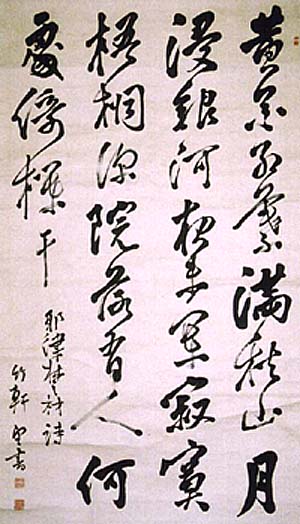 黄紅葉滿秋山月
浸銀河夜未寂寞
梧桐深院落有人何
處倚欄干
耶律楚材詩
竹軒書